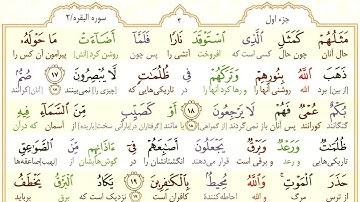 جزء اول ۴ سوره البقره/۲
مَثَلُهُمْ كَمَثَلِ الَّذِی اسْتَوْقَدَ نَارًا فَلَمَّا أَضَاءَتْ مَا حَوْلَهُ
حال آنان چون حال کسی است که افروخت آتشی را پس چون روشن کرد [آتش] پیرامون آن کس را
ذَهَبَ اللَّهُ بِنُورِهِمْ وَتَرَكَهُمْ فِی ظُلُمَٰتٍ لَّا یُبْصِرُونَ ۱۷ صُمٌّ
از بین برد خدا نورشان را و رها کرد آنها را در تاریکی‌هایی [چیزی را] نمی‌بینند (۱۷) [آنان] کرانند
بُكْمٌ عُمْیٌ فَهُمْ لَا یَرْجِعُونَ ۱۸ أَوْ كَصَیِّبٍ مِّنَ السَّمَاءِ فِیهِ
گنگانند کورانند پس آنان باز نمی‌گردند (۱۸) یا مانند از آسمان که در آن
ظُلُمَٰتٌ وَرَعْدٌ وَبَرْقٌ یَجْعَلُونَ أَصَٰبِعَهُمْ فِی ءَاذَانِهِم مِّنَ الصَّوَٰعِقِ
تاریکی‌هایی و رعد و برقی است قرار می‌دهند انگشتانشان را در گوش‌هایشان از صاعقه‌ها
حَذَرَ الْمَوْتِ وَاللَّهُ مُحِیطٌ بِالْكَٰفِرِینَ ۱۹ یَكَادُ الْبَرْقُ یَخْطَفُ
از بیم مرگ و خدا احاطه‌کننده است به کافران (۱۹) نزدیک است که برق برباید